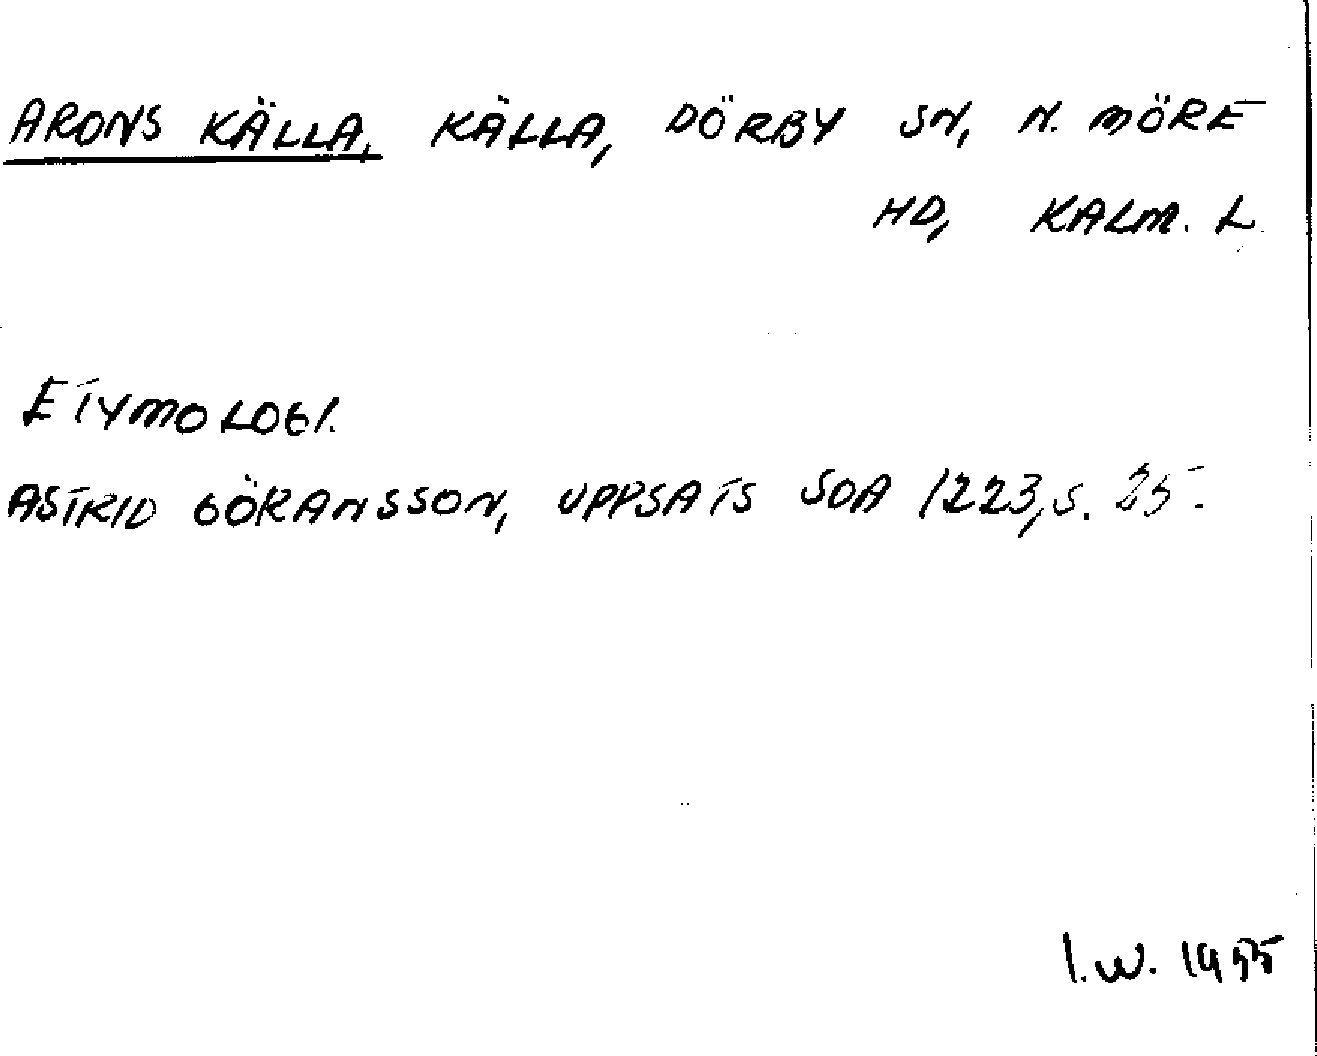 ARONS KÄLLA, KÄLLA, DÖRBY SN, N. MÖRE
HD, KALM. L.
ETYMOLOGI.
ASTRID GÖRANSSON, UPPSATS SOA 1223, S. 25.
I.W. 1955